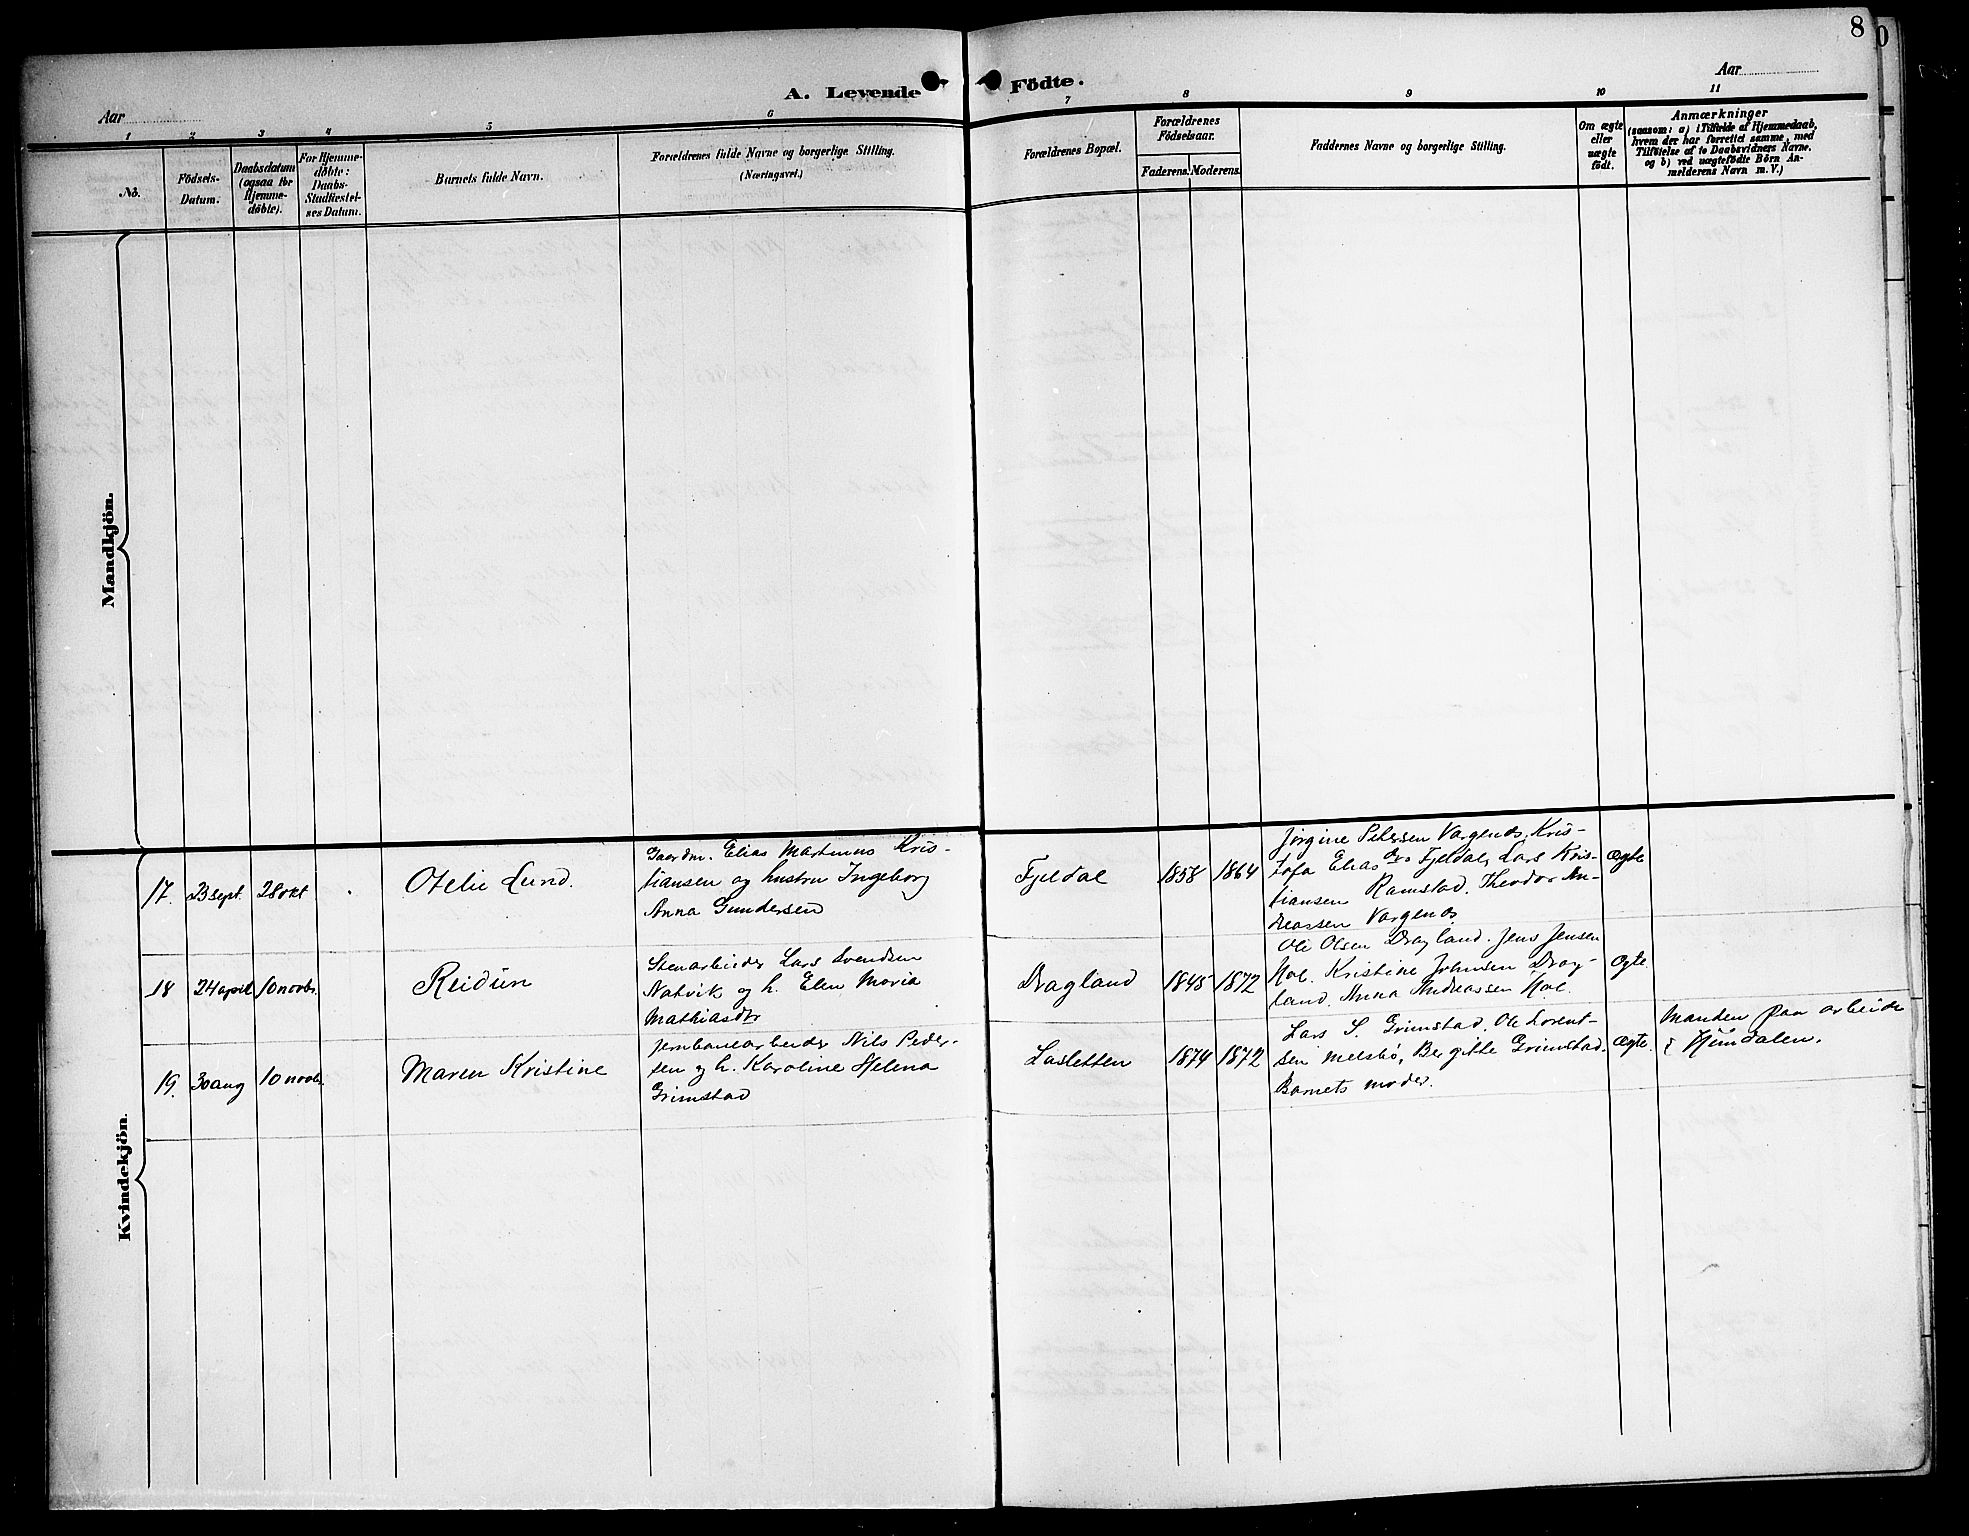 8
A. Levende Födte.
Aar
Aar
1 2 3 4 5 6 7 8 9 10 11
No.
Födsels-
Datum.
Daabsdatum
(ogsaa for
Hjemme-
döbte).
For Hjemme-
döbte:
Daabs-
Stadfæstel-
ses Datum.
Barnets fulde Navn.
Forældrenes fulde Navne og borgerlige Stilling.
(Næringsvei.)
Forældrenes Bopæl.
Forældrenes
Födselsaar.
Faderens.
Moderens.
Faddernes Navne og borgerlige Stilling.
Om ægte
eller
uægte
födt.
Anmærkninger
(saasom: a) i Tilfælde af Hjemmedaab,
hvem der har forrettet samme, med
Tilföielse af to Daabsvidners Navne,
og b) ved uægtefödte Börn An-
melderens Navn m. V.)
Mandkjön.
Kvindekjön.
17. 23 sept. 28 okt
Otelie Lund.
Gaardm. Elias Martinus Kris-
tiansen og hustru Ingeborg
Anna Gundersen
Fjeldal
1858 1864
Jörgine Petersen Vargends, Kris-
tofa Elias Fjeldal, Lars Kris-
tiansen Ramstad. Theodor An-
reassen Vargends
Ægte
18 24 april 10 novbr.
Reidun
Stenarbeider Lars Svendsen
Natvik og h. Elen Maria
Mathiasdtr
Dragland
1845 1872
Ole Olsen Dragland. Jens Jensen
Hol. Kristine Johnsen Drag-
land. Anna Andreassen Hol.
Ægte
19. 30 aug 10 novbr.
Maren Kristine
Jernbanearbeider Nils Peder-
sen og h. Karoline Helena
Grimstad
Lasletten
1874 1872
Lars S. Grimstad. Ole Lorent-
sen Melsbö, Bergitte Grimstad.
Barnets moder.
Ægte.
Manden paa arbeide
i Hundalen.